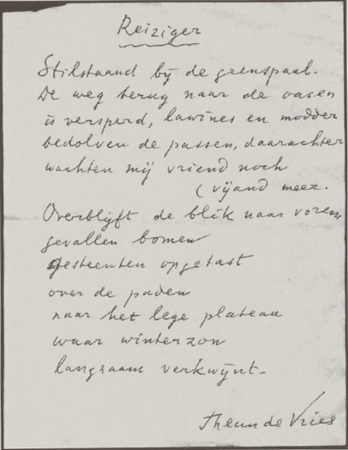 Reiziger
Stilstaand bij de grenspaal.
De weg terug naar de oasen
is versperd, lawines en modder
bedolven de passen, daarachter
wachten mij vriend noch
(vijand meer.
Overblijft de blik naar voren:
gevallen bomen
gesteenten opgetast
over de paden
naar het lege plateau
waar winterzon
langzaam verkwijnt.
Theun de Vries